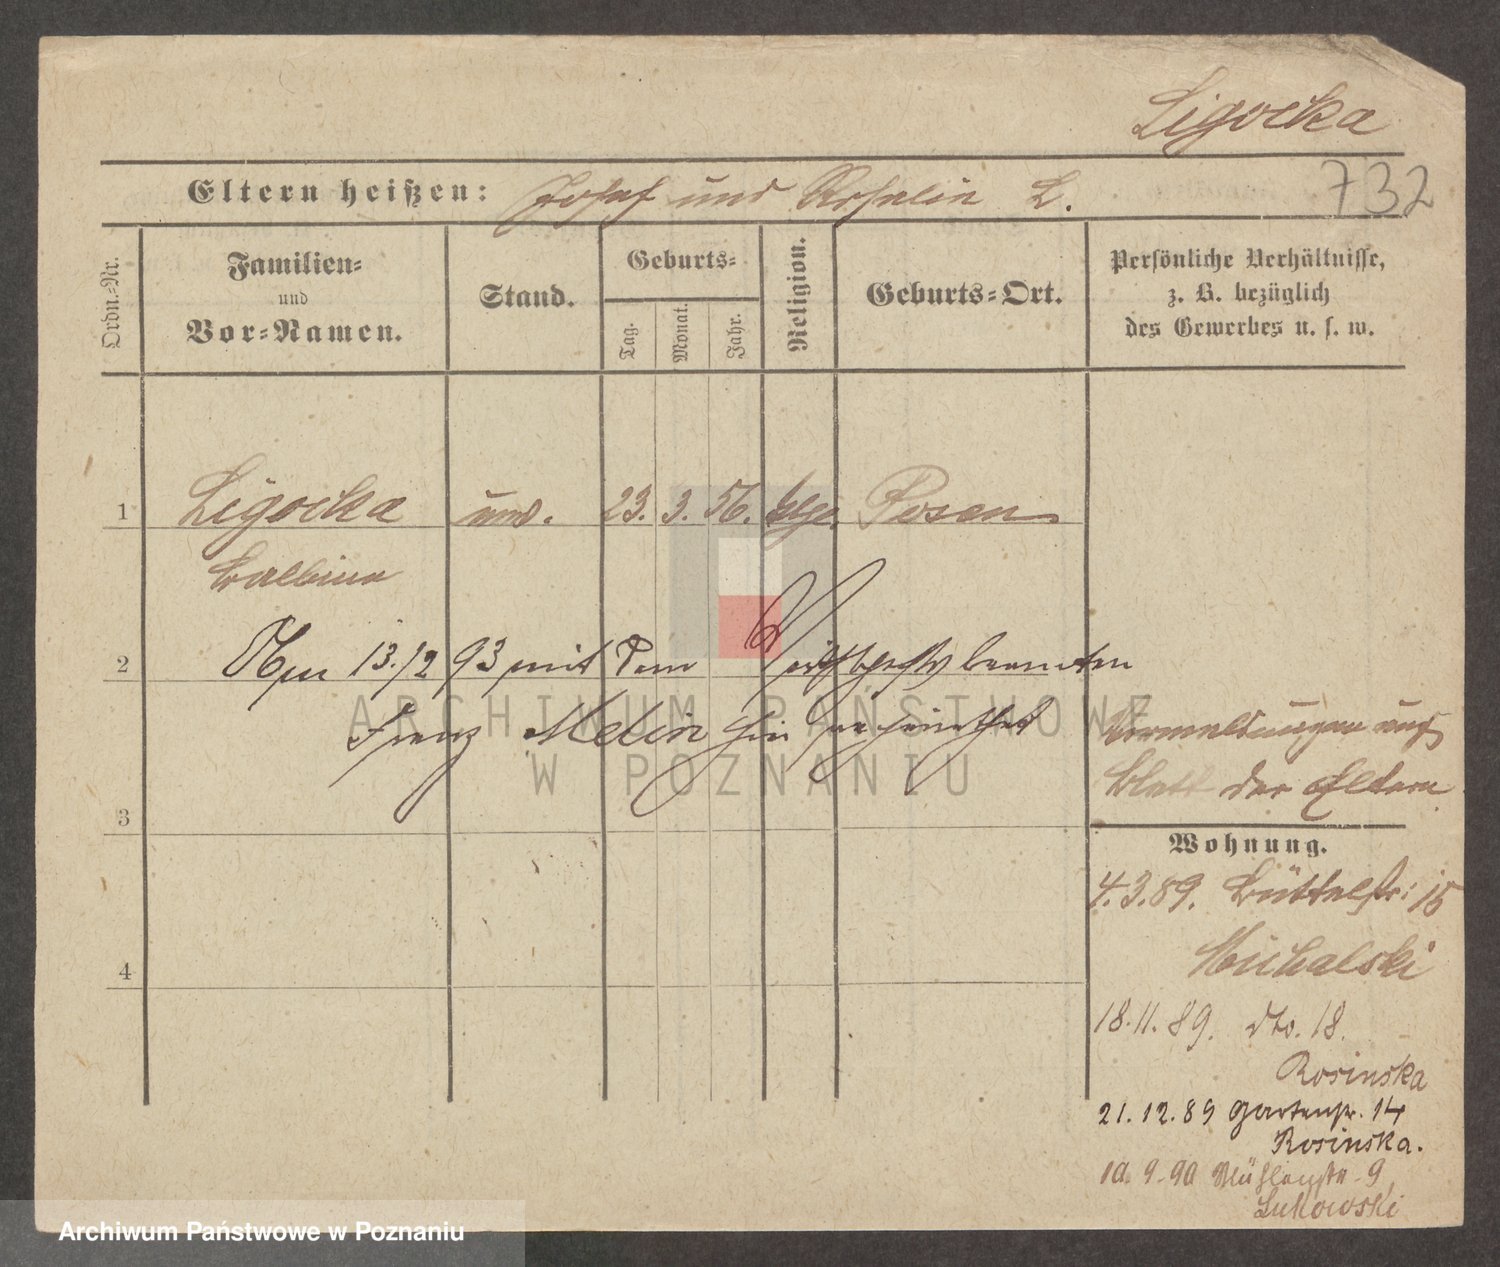 Ligocka
Eltern heißen: Josef und Rosalie L.
732
Ordn.-Nr.
Familien-
und
Vor-Namen.
Stand.
Geburts-
Tag.
Monat.
Jahr.
Religion.
Geburts-Ort.
Persönliche Verhältnisse,
z. B. bezüglich
des Gewerbes u. s. w.
1 Ligocka unv. 23. 3. 56. Posen
Balbina
2 13./2 93 mit dem
Franz Melin hier verheirathet
ARCHIWUM PAŃSTWOWE
W POZNANIU
Vormeldungen auf
Blatt der Eltern
3
Wohnung.
4.3.89. Büttelstr: 15
Michalski
4
18.11.89. dto. 18.
Rosinska
21.12.89 Gartenstr. 14
Rosinska.
10.9.90 Mühlenstr. 9
Lukowski
Archiwum Państwowe w Poznaniu